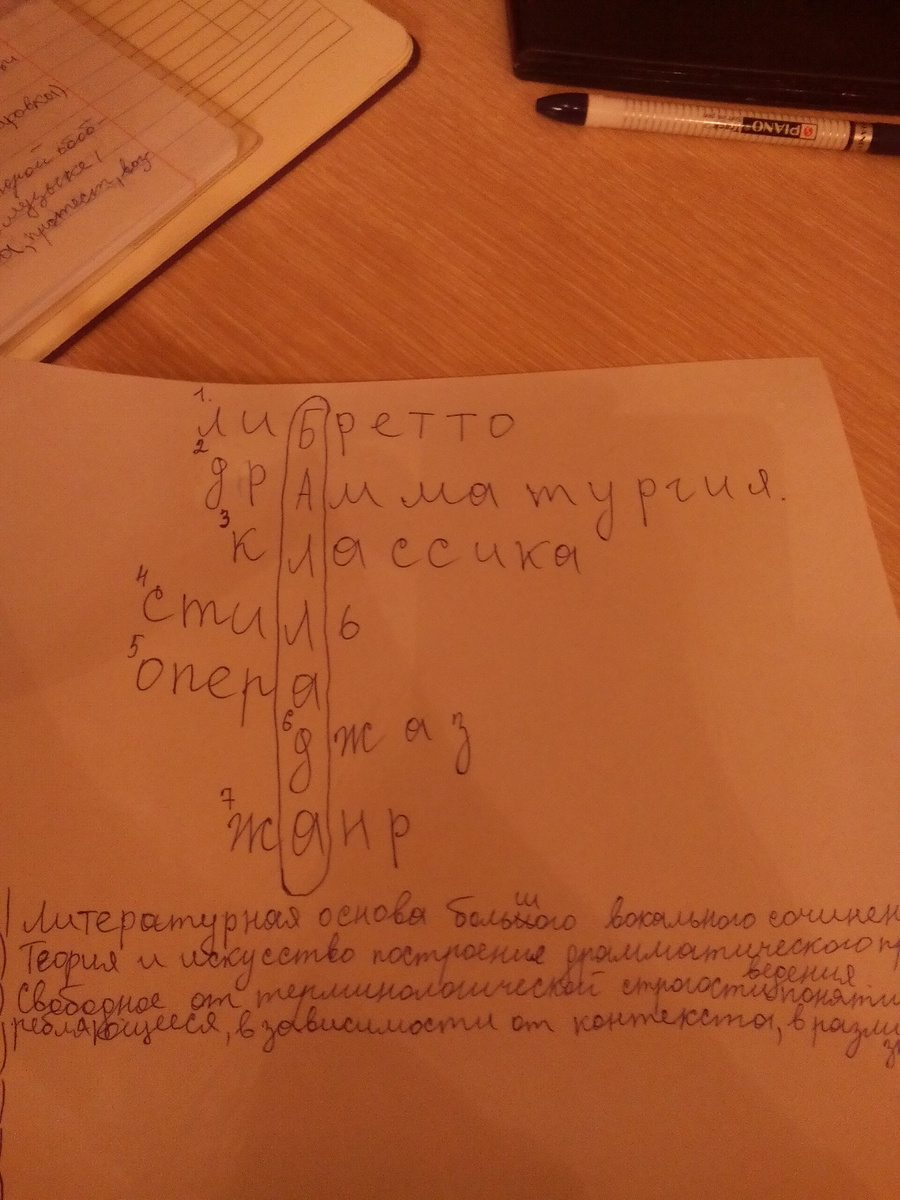 ровка)
музыке!
а, протест, воз-
PIANO
1. лиБретто
2 дрАмматургия.
3 классика
4 стиль
5 опера
6 джаз
7 жанр
1 Литературная основа большого вокального сочинен
Теория и искусство построение драмматического пр
ведения
Свободное от терминологической строгости поняти
ребляющееся, в зависимости от контекста, в разли